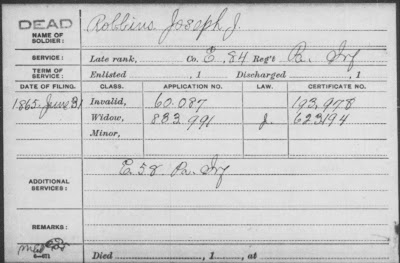 DEAD
NAME OF SOLDIER:
Robbins Joseph J.
SERVICE:
Late rank, Co. E. 84 Reg't Pa. Inf
TERM OF SERVICE:
Enlisted , 1 Discharged , 1
DATE OF FILING. CLASS. APPLICATION NO. LAW. CERTIFICATE NO.
1865. June 31 Invalid, 60.087 193,978
Widow, 833.991 J. 623194
Minor,
ADDITIONAL SERVICES:
E. 58. Pa. Inf
REMARKS:
6—621
Died , 1 , at